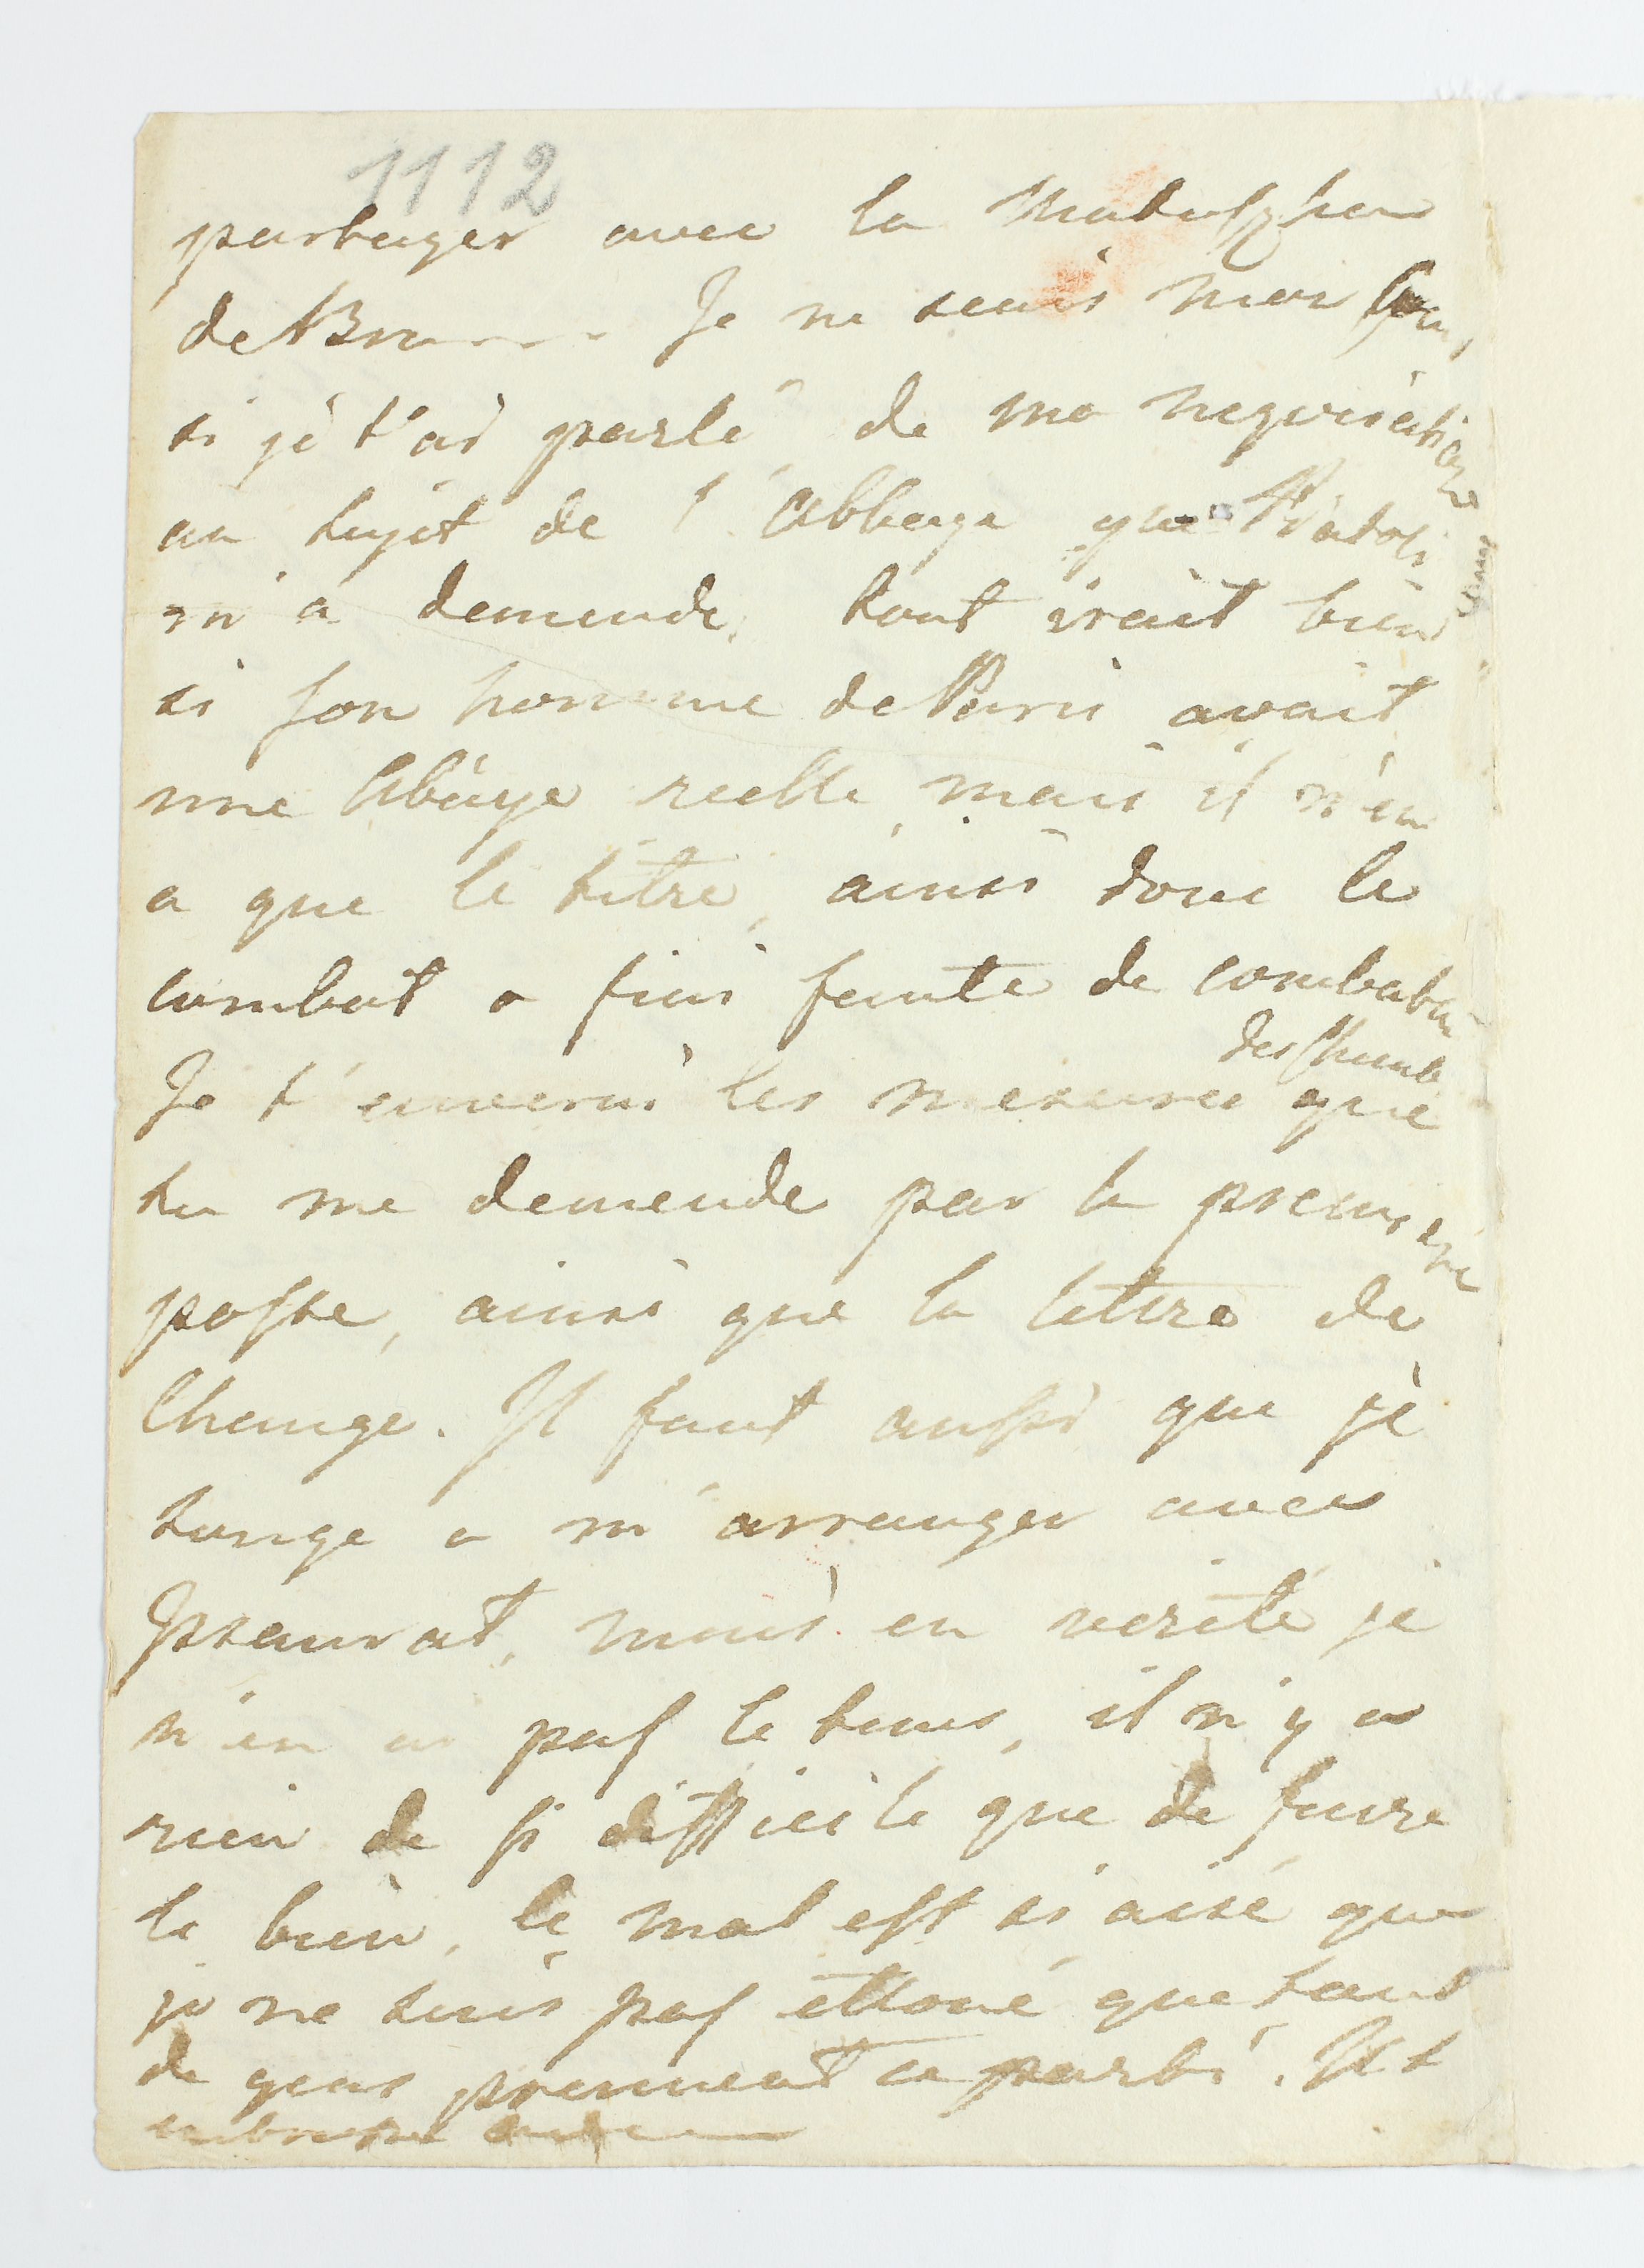 1112
partager avec la
de Bra---- Je ne scais mon
si je t'ai parlé de ma negociation
au sujet de l'Abbaye que
m'a demende, tout irait bien
si son homme de Paris avait
une Abaye reelle, mais il n'en
a que le titre, ainsi donc le
combat a fini faute de combatan
Je t'enverai les mesures que
des
tu me demende par la premiere
poste, ainsi que la lettre de
Change. Il faut aussi que je
songe a m'arranger avec
mais en verité je
n'en ai pas le tems, il n'y a
rien de si difficile que de faire
le bien, le mal est si aisé que
je ne suis pas ettoné que tant
de gens prennent ce parti.